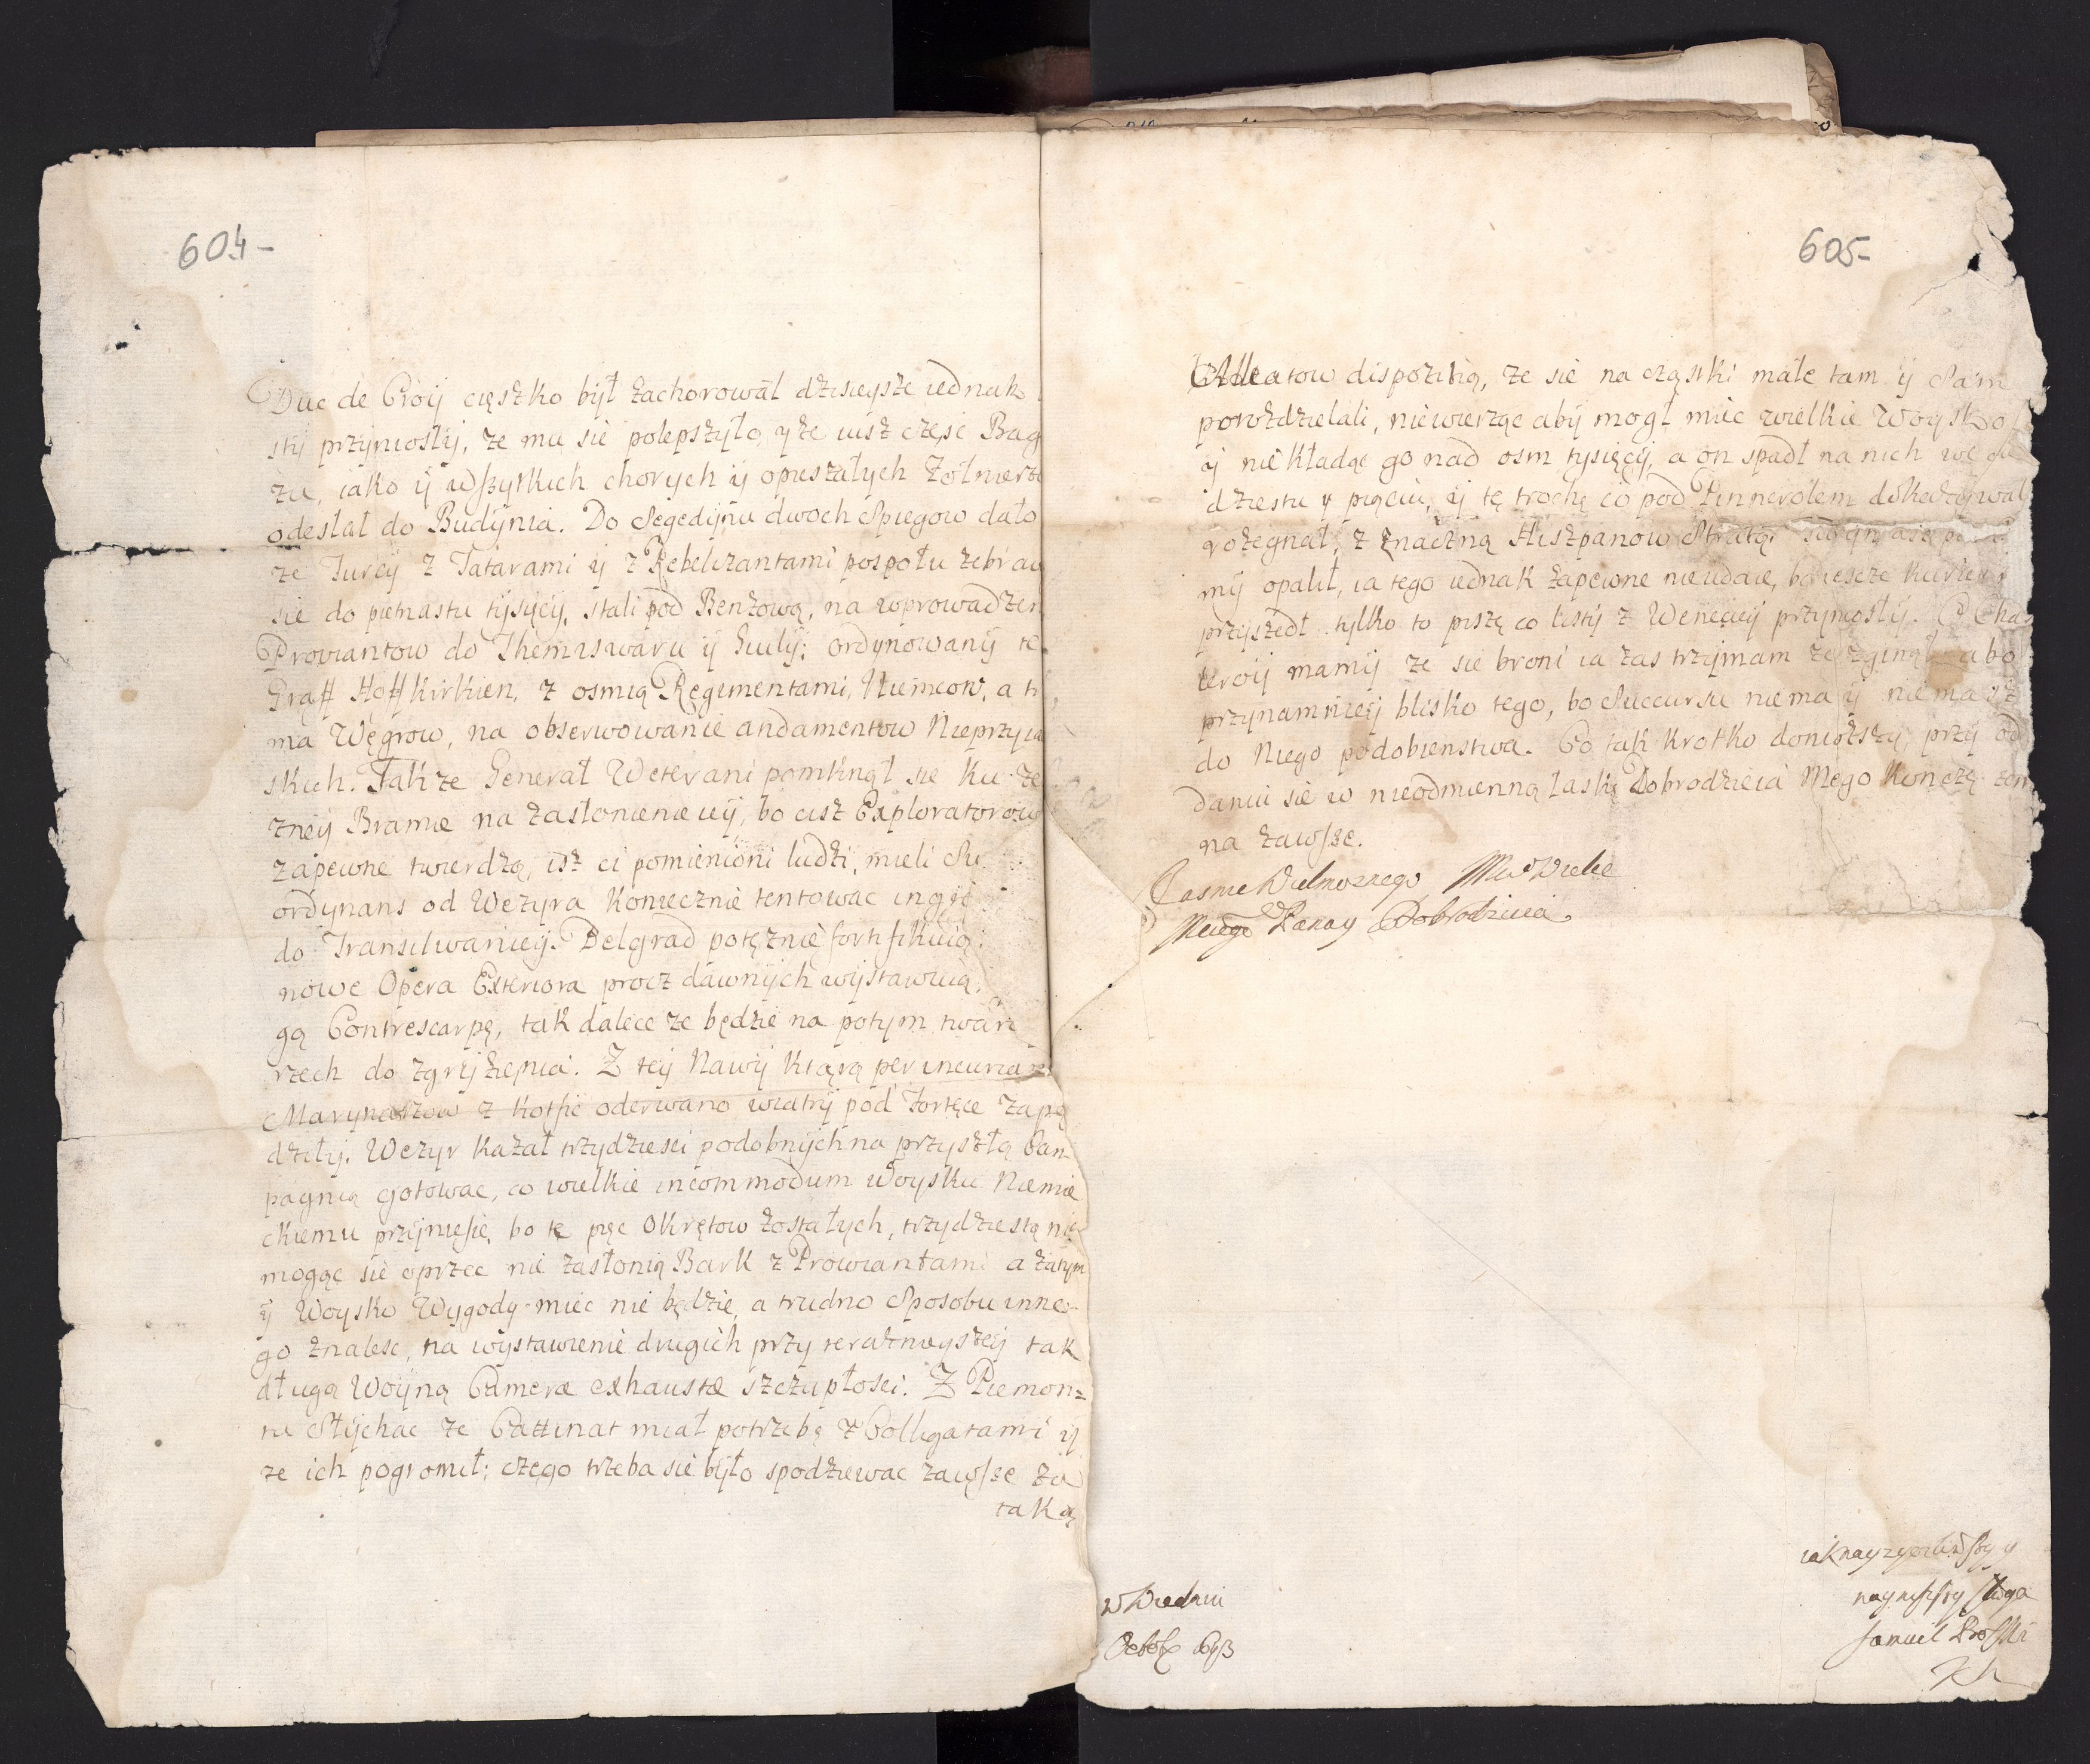 604-
Duc de Croij cięszko był zachorował dzisieysze iednak
sty przyniosłij, ze mu się polepszyło, y że iusz częsc Bag
żu, iako ij wszytkich chorych ij opieszałych Żołnierzo
odesłał do Budynia. Do Segedijnu dwoch Spiegow dało
ze Turcy z Tatarami ij z Rebelizantami pospołu zebraw
się do pietnastu tysięcy, stali pod Benzową, na wprowadzen
Prowiantow do Themiswaru ij Giulij; ordynowanij te
Graff Hoffkirkien, z osmią Regimentami, Niemcow, a tr
ma Węgrow, na obserwowanie andamentow Nieprzyia
skich. Takze Generał Weterani pomknął się ku Że
zneij Bramie na zasłonienie ieij, bo cisz Exploratorow
zapewne twierdzą, isz ci pomienioni ludzi, mieli
ordynans od Wezyra koniecznie tentowac ingre
do Transilwaniey. Belgrad potęznie fortifikuią
nowe Opera Exteriora procz dawnych wystawuią,
gą Contrescarpę, tak dalece ze będzie na potym twar
rzech do zgryzienia. Z tey Nawy ktąrą per incuriam
Marynarzow z kotfic oderwano wiatry pod Fortęce zapę
dziłij. Wezyr kazał trzydziesci podobnych na przyszłą Cam
pagnią gotowac, co wielkie incommodum Woysku Niemie
ckiemu przyniesie, bo te pięc Okrętow zostałych, trzydziestą nie
mogąc się oprzec nie zasłonią Bark z Prowiantami a zatym
ij Woysko Wygody miec nie będzie, a trudno Sposobu inne
go znalesc, na wystawienie drugich przy teraznieyszeij tak
długą Woyną Cameræ exhaustæ szczupłosci. Z Piemon=
tu Słychac ze Cattinat miał potrzebę z Collegatami ij
ze ich pogromił; czego trzeba się było spodziewac zawsze za
taką
605-
Alleatow dispozitią, ze się na cząstki małe tam ij sam
porozdzielali, niewierząc aby mogł miec wielkie Woysko
ij nie kładąc go nad osm tysięcy, a on spadł na nich we
dziestu y pięciu, ij tę trochę co pod Pinnerolem dokazywal
rożegnał, z znaczną Hiszpanow Stratą.
mij opalił, ia tego iednak zapewne nieudaię, bo ieszcze kurier
przyszedł tylko to piszę co listy z Weneciey przyniosły.
leroij mamy ze się broni ia zas trzymam ze zginął abo
przynamniey blisko tego, bo Succursu nie ma ij nie masz
do Niego podobienstwa. Co tak krotko doniozszy, przy od
daniu się w nieodmienną łaskę Dobrodzieia Mego Konczę
na zawsze.
Jasnie Wielmoznego Mci Wielce
Mego Pana y Dobrodzieia
w Wiedniu
Octobr 693
naynizszy sługa
Samuel